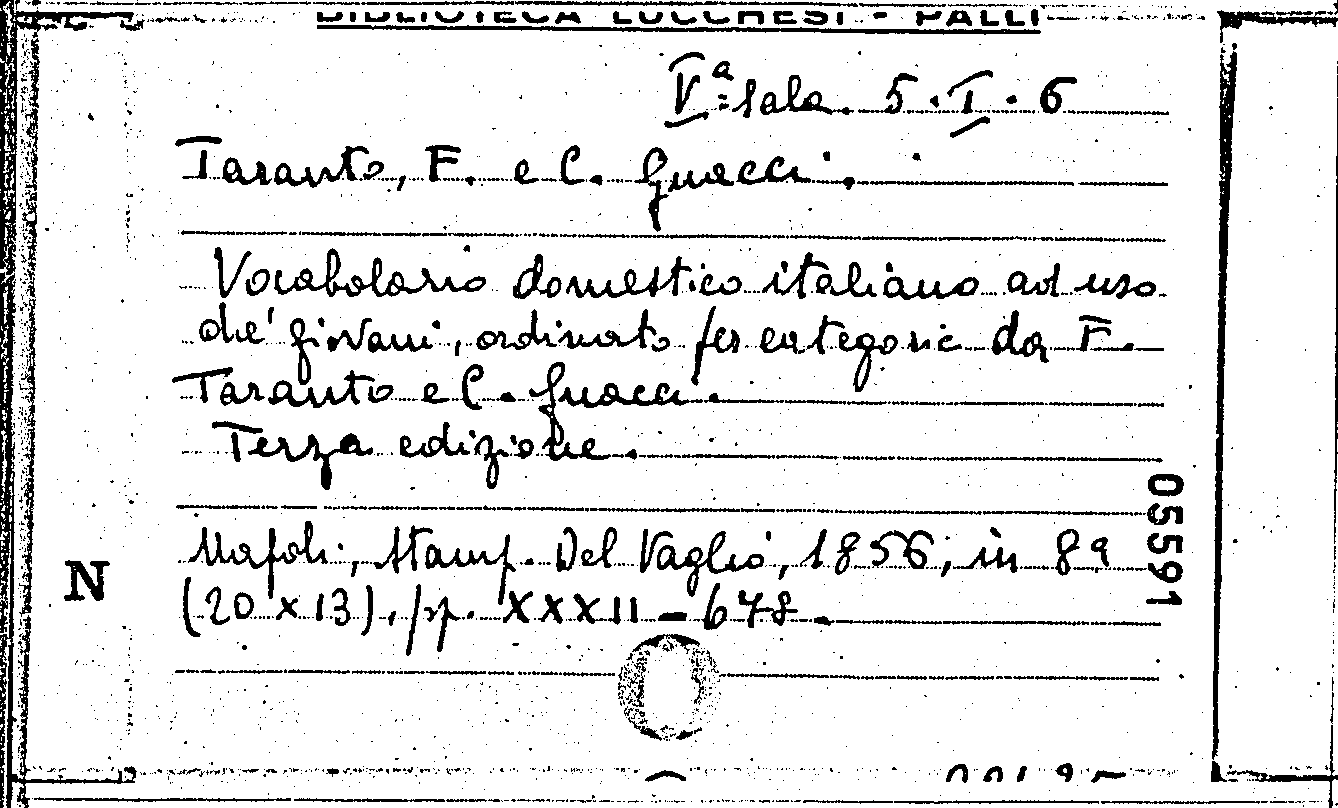 BIBLIOTECA LUCCHESI - PALLI
Vª sala. 5. I. 6
Taranto, F. e C. Guacci.
Vocabolario domestico italiano ad uso
de' giovani, ordinato per categorie da F.
Taranto e C. Guacci.
Terza edizione.
Napoli, Stamp. Del Vaglio, 1856, in 8º
(20 x 13), pp. XXXII - 678.
N
05591